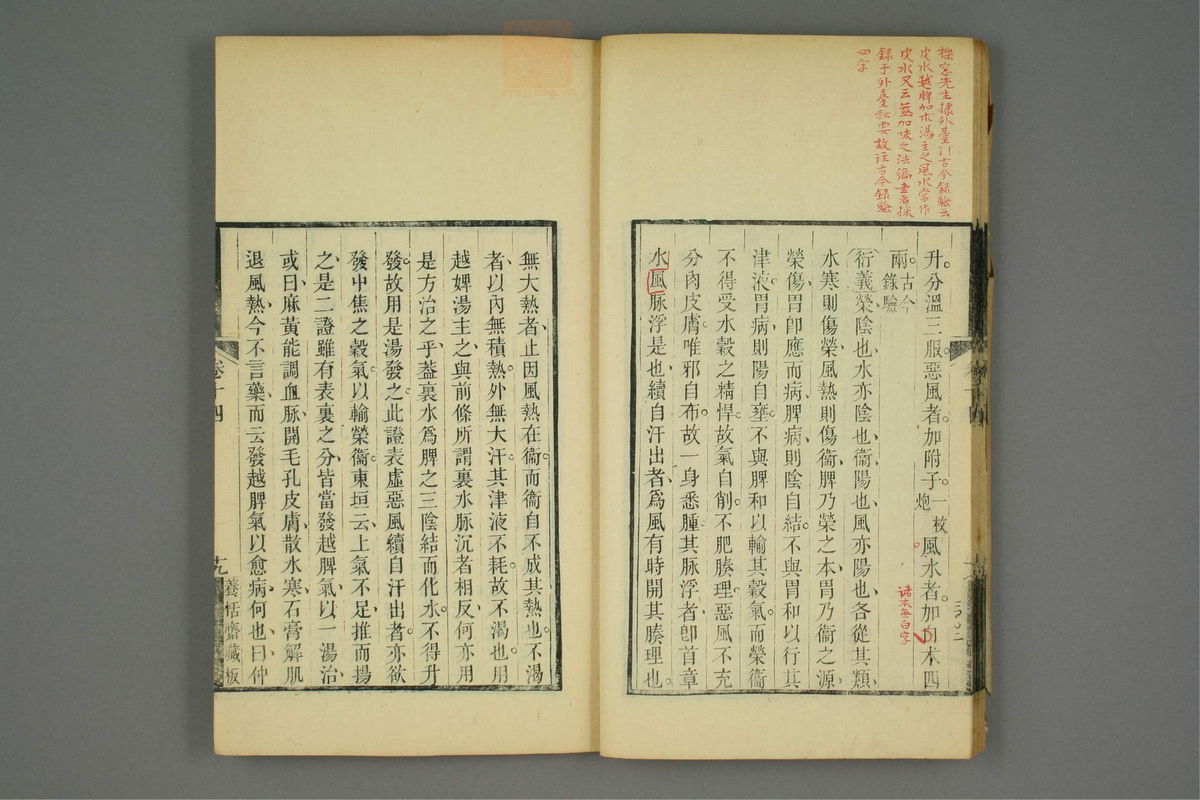 櫟窓先生據外臺引古今錄驗云
皮水越脾加朮湯主之風水當作
皮水又云蓋加味之法編書者採
錄于外臺秘要故註古今錄驗
四字
升分溫三服惡風者加附子一枚炮風水者加白朮四
兩古今錄驗
諸本無白字
衍義榮陰也水亦陰也衞陽也風亦陽也各從其類
水寒則傷榮風熱則傷衞脾乃榮之本胃乃衞之源
榮傷胃卽應而病脾病則陰自結不與胃和以行其
津液胃病則陽自壅不與脾和以輸其穀氣而榮衞
不得受水穀之精悍故氣自削不肥腠理惡風不充
分肉皮膚唯邪自布故一身悉腫其脉浮者卽首章
水風脉浮是也續自汗出者爲風有時開其腠理也
無大熱者止因風熱在衞而衞自不成其熱也不渴
者以內無積熱外無大汗其津液不耗故不渴也用
越婢湯主之與前條所謂裏水脉沉者相反何亦用
是方治之乎葢裏水爲脾之三陰結而化水不得升
發故用是湯發之此證表虛惡風續自汗出者亦欲
發中焦之穀氣以輸榮衞東垣云上氣不足推而揚
之是二證雖有表裏之分皆當發越脾氣以一湯治
或曰麻黃能調血脉開毛孔皮膚散水寒石膏解肌
退風熱今不言藥而云發越脾氣以愈病何也曰仲
卷十四
養恬齋藏板